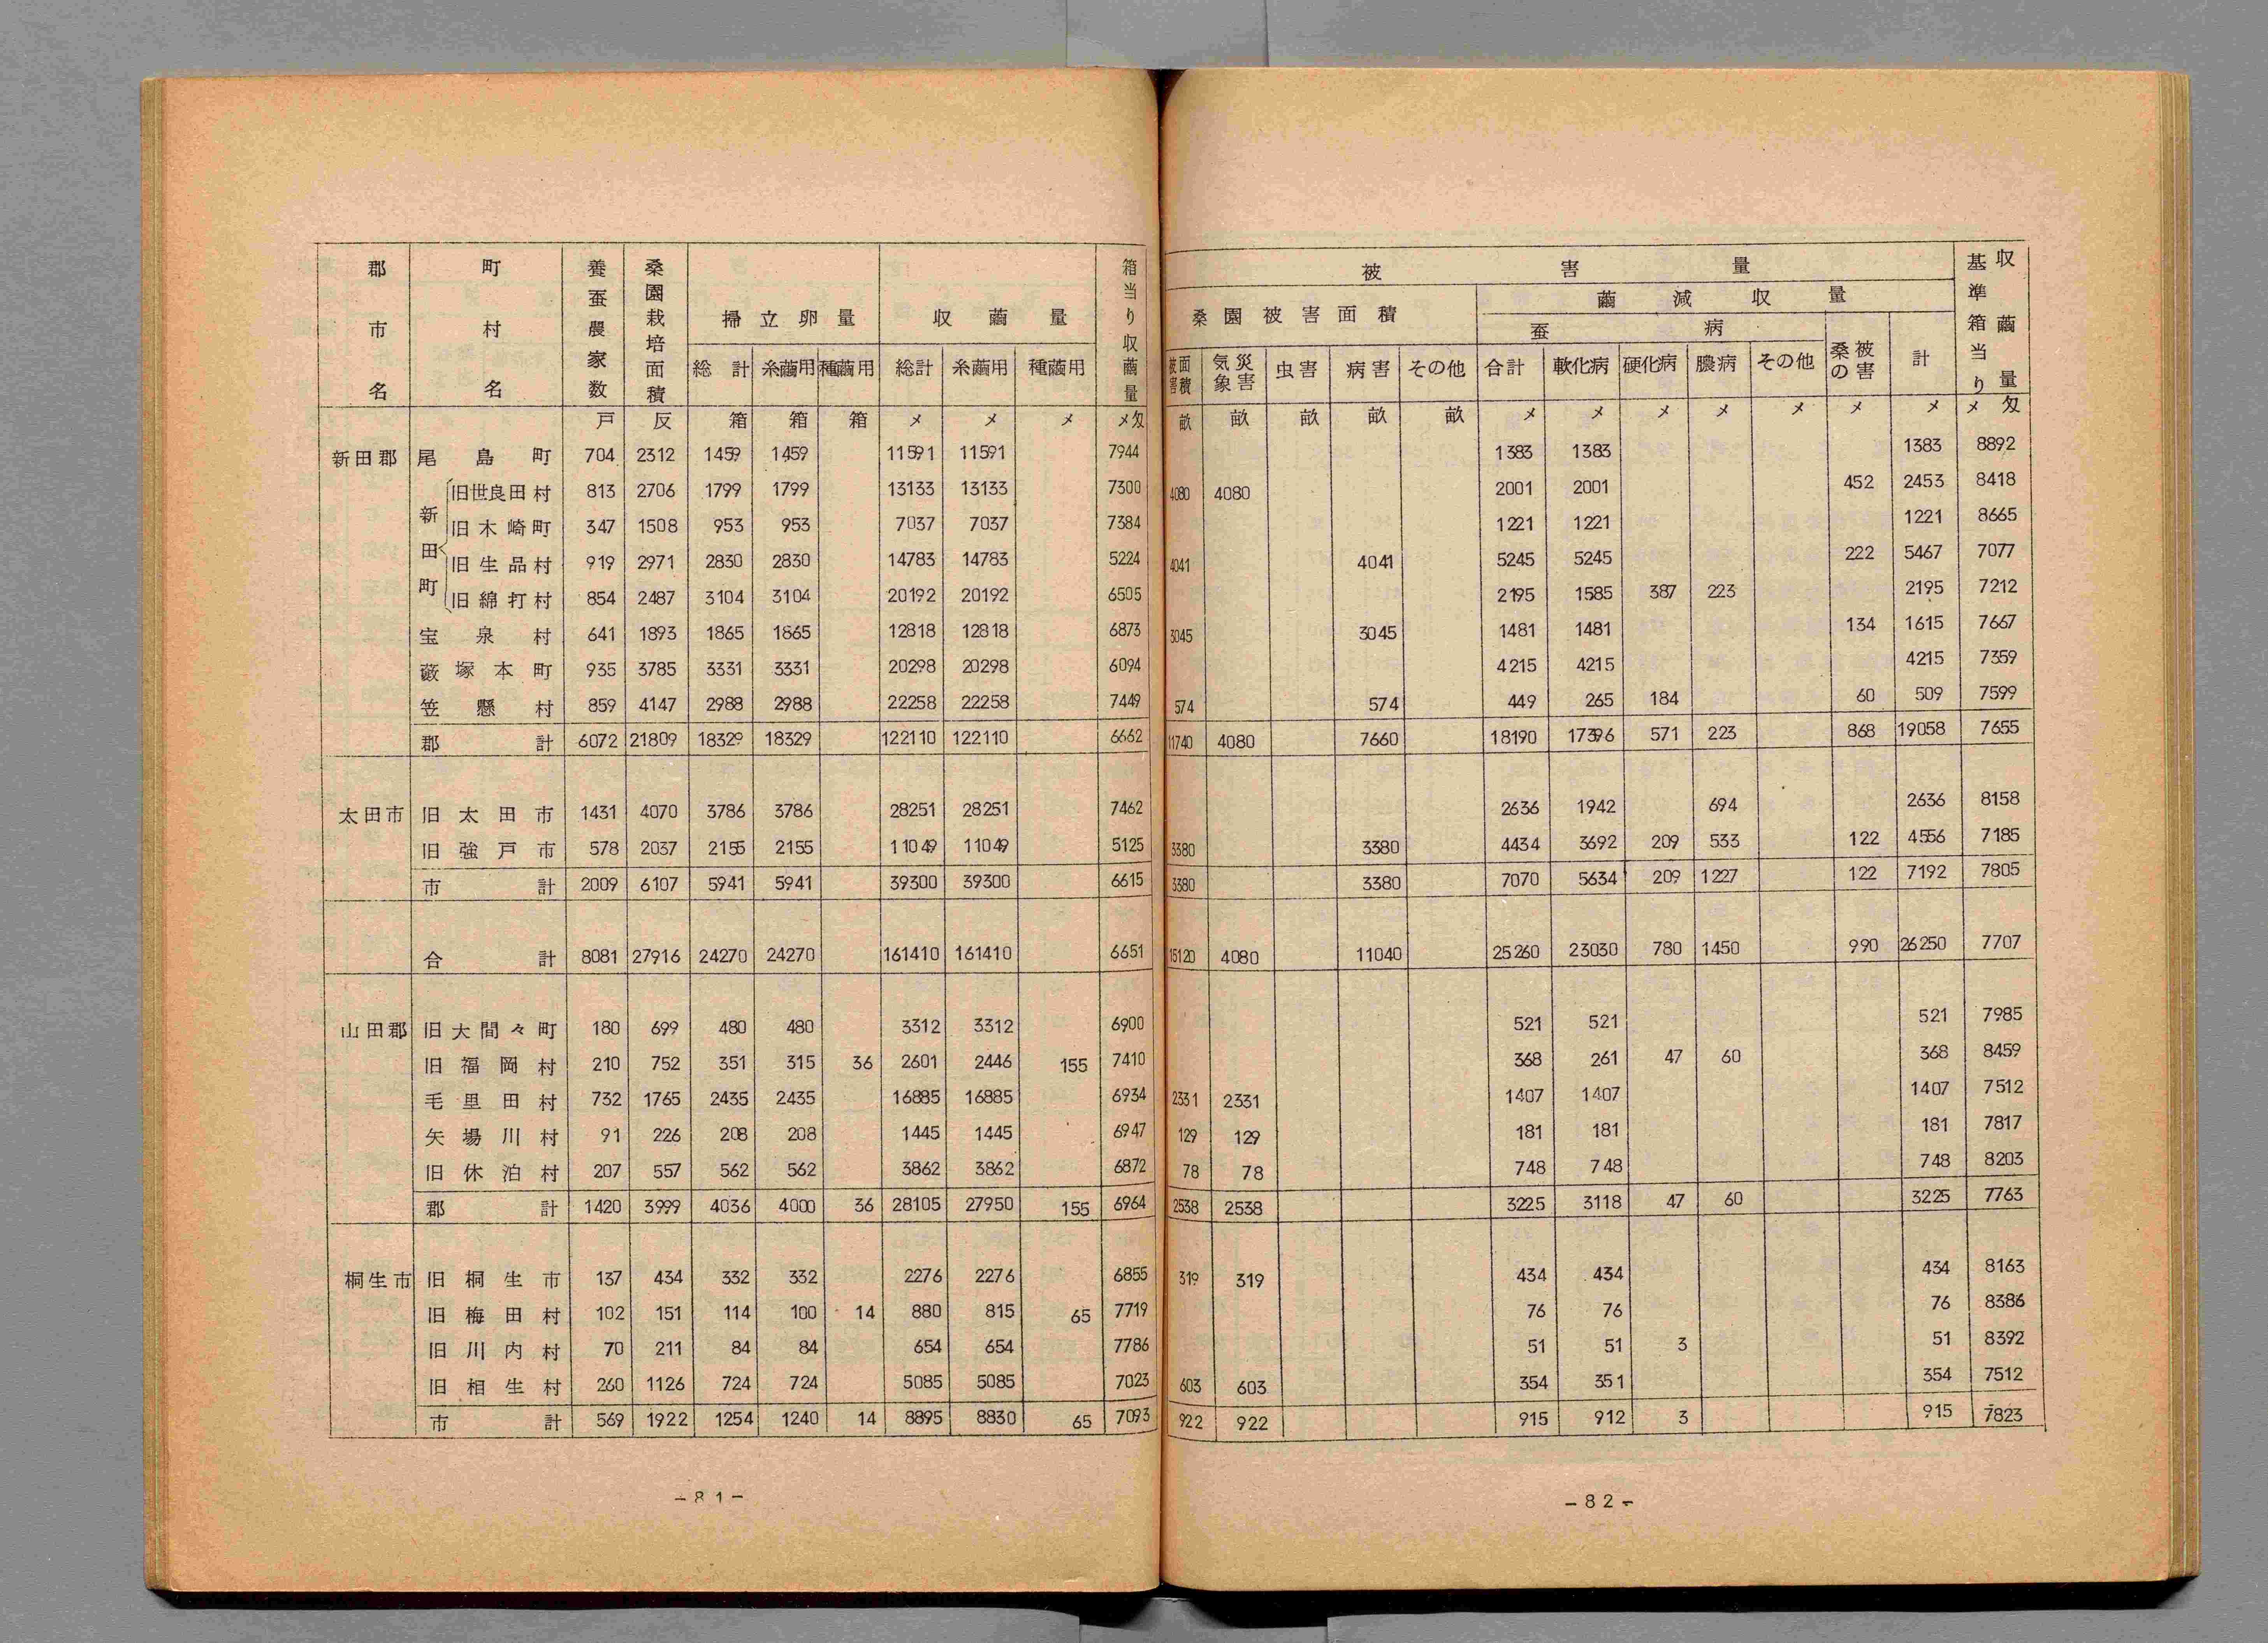 郡市名 町村名 養蚕農家数 桑園栽培面積 掃立卵量 収繭量 箱当り収繭量
総計 糸繭用 種繭用 総計 糸繭用 種繭用
戸 反 箱 箱 箱 メ メ メ メ匁
新田郡 尾島町 704 2312 1459 1459 11591 11591 7944
新田町
旧世良田村 813 2706 1799 1799 13133 13133 7300
旧木崎町 347 1508 953 953 7037 7037 7384
旧生品村 919 2971 2830 2830 14783 14783 5224
旧綿打村 854 2487 3104 3104 20192 20192 6505
宝泉村 641 1893 1865 1865 12818 12818 6873
藪塚本町 935 3785 3331 3331 20298 20298 6094
笠懸村 859 4147 2988 2988 22258 22258 7449
郡計 6072 21809 18329 18329 122110 122110 6662
太田市 旧太田市 1431 4070 3786 3786 28251 28251 7462
旧強戸市 578 2037 2155 2155 11049 11049 5125
市計 2009 6107 5941 5941 39300 39300 6615
合計 8081 27916 24270 24270 161410 161410 6651
山田郡 旧大間々町 180 699 480 480 3312 3312 6900
旧福岡村 210 752 351 315 36 2601 2446 155 7410
毛里田村 732 1765 2435 2435 16885 16885 6934
矢場川村 91 226 208 208 1445 1445 6947
旧休泊村 207 557 562 562 3862 3862 6872
郡計 1420 3999 4036 4000 36 28105 27950 155 6964
桐生市 旧桐生市 137 434 332 332 2276 2276 6855
旧梅田村 102 151 114 100 14 880 815 65 7719
旧川内村 70 211 84 84 654 654 7786
旧相生村 260 1126 724 724 5085 5085 7023
市計 569 1922 1254 1240 14 8895 8830 65 7093
-81-
被害量 基準箱当り収繭量
桑園被害面積 繭減収量
蚕病 桑の被害 計
被害面積 気象災害 虫害 病害 その他 合計 軟化病 硬化病 膿病 その他
畝 畝 畝 畝 畝 メ メ メ メ メ メ メ メ匁
1383 1383 1383 8892
4080 4080 2001 2001 452 2453 8418
1221 1221 1221 8665
4041 4041 5245 5245 222 5467 7077
2195 1585 387 223 2195 7212
3045 3045 1481 1481 134 1615 7667
4215 4215 4215 7359
574 574 449 265 184 60 509 7599
11740 4080 7660 18190 17396 571 223 868 19058 7655
2636 1942 694 2636 8158
3380 3380 4434 3692 209 533 122 4556 7185
3380 3380 7070 5634 209 1227 122 7192 7805
15120 4080 11040 25260 23030 780 1450 990 26250 7707
521 521 521 7985
368 261 47 60 368 8459
2331 2331 1407 1407 1407 7512
129 129 181 181 181 7817
78 78 748 748 748 8203
2538 2538 3225 3118 47 60 3225 7763
319 319 434 434 434 8163
76 76 76 8386
51 51 3 51 8392
603 603 354 351 354 7512
922 922 915 912 3 915 7823
-82-